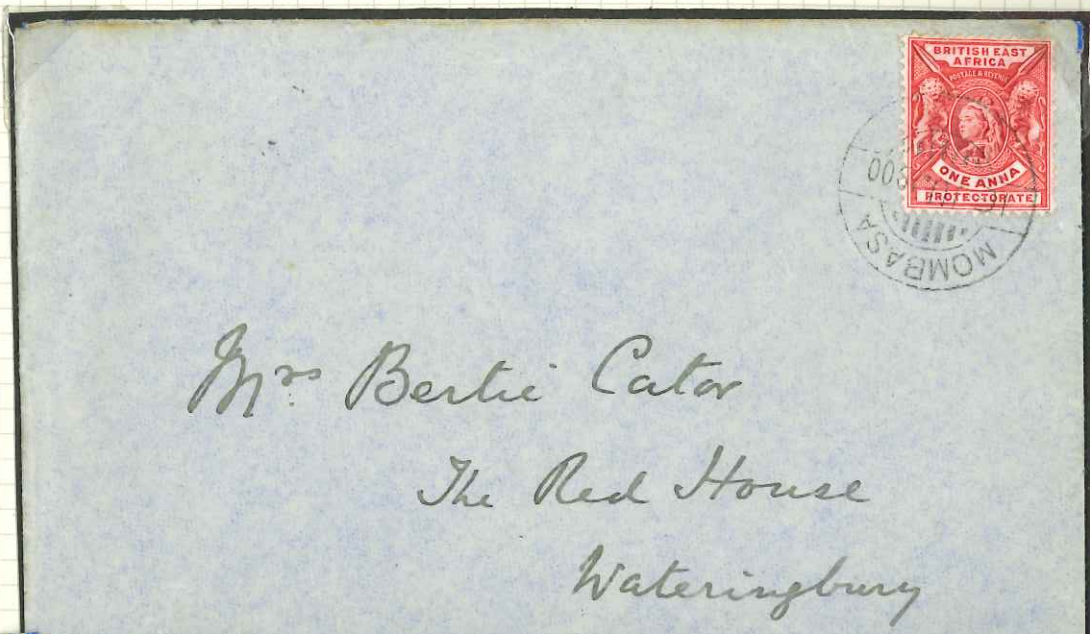 BRITISH EAST
AFRICA
POSTAGE & REVENUE
ONE ANNA
PROTECTORATE
MOMBASA
Mrs. Bertie Cator
The Red House
Wateringbury